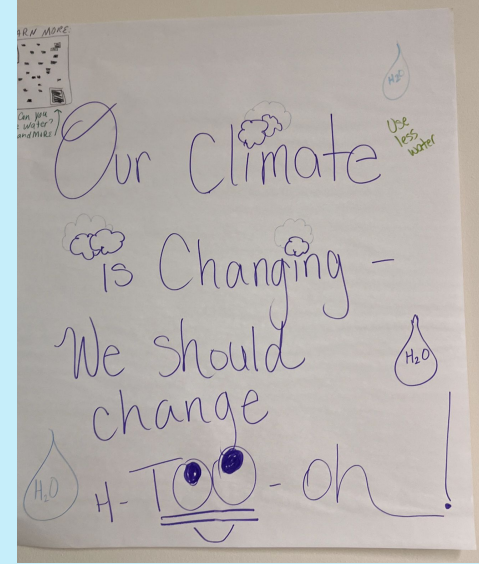 ARN MORE:
Can you
water?
and more
H₂O
Use
less
water
Our Climate
is Changing -
We should
change
H-TOO-Oh!
H₂O
H₂O